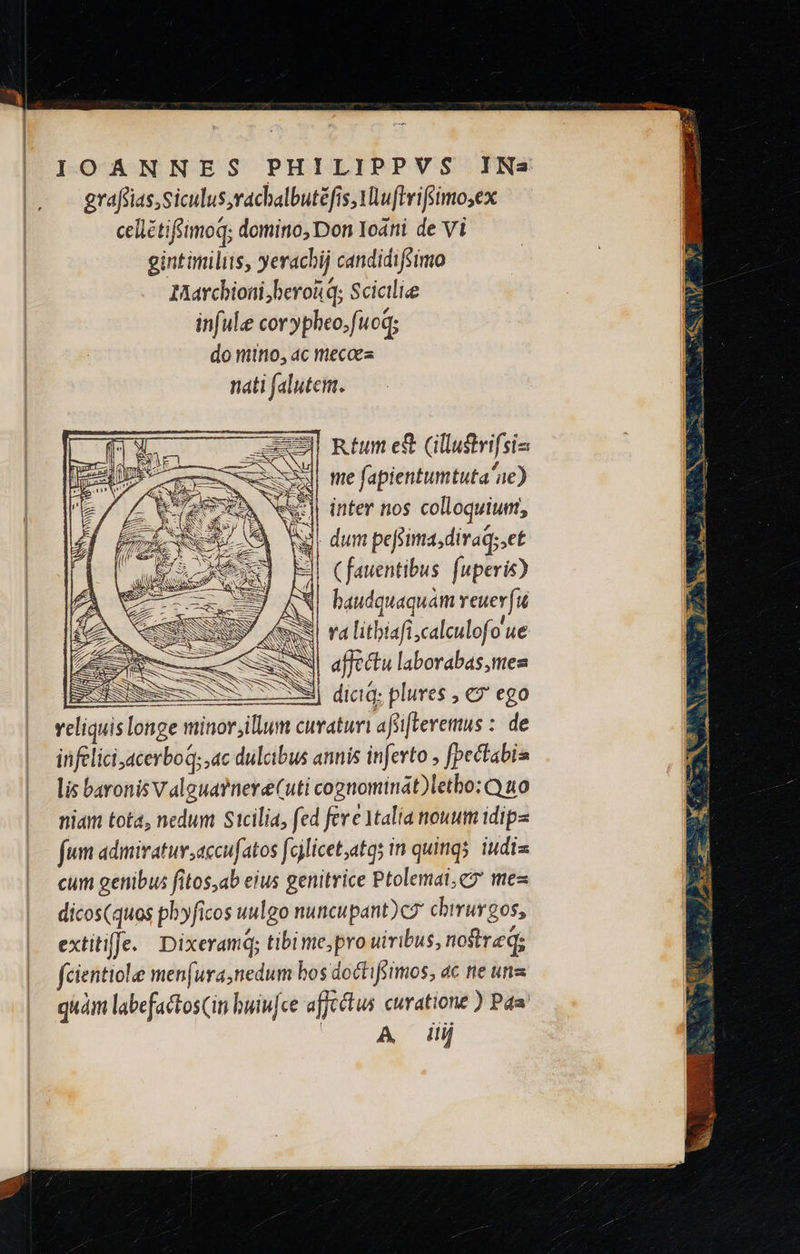 IOANNES PHILIPPVS IN=
graſsias,Siculus,rachalbutēſis,Illuſtriſsimo,ex
cellētiſsimoq; domino, Don Ioāni de Vi
gintimiliis, yerachij candidiſsimo
Marchioni,heroūq; Sciciliæ
inſulæ corypheo,ſuoq;
domino, ac mecœ=
nati ſalutem.
Rtum eſt (illuſtriſsi=
me ſapientumtuta'ne)
inter nos colloquium,
dum peſsima,diraq;,et
(fauentibus ſuperis)
haudquaquàm reuerſu
ra lithiaſi,calculoſo'ue
affectu laborabas,me=
diciq; plures , & ego
reliquis longe minor,illum curaturi aſsiſteremus : de
infelici,acerboq;,ac dulcibus annis inſerto , ſpectabi=
lis baronis Valguarneræ(uti cognominãt)letho: Quo
niam tota, nedum Sicilia, ſed fere Italia nouum idip=
ſum admiratur,accuſatos ſcilicet,atq; in quinq; iudi=
cum genibus ſitos,ab eius genitrice Ptolemai,& me=
dicos(quos phyſicos uulgo nuncupant)& chirurgos,
extitiſſe. Dixeramq; tibi me,pro uiribus, noſtræq;
ſcientiolæ menſura,nedum hos doctiſsimos, ac ne un=
quàm labefactos(in huiuſce affectus curatione ) Pa=
A iiij